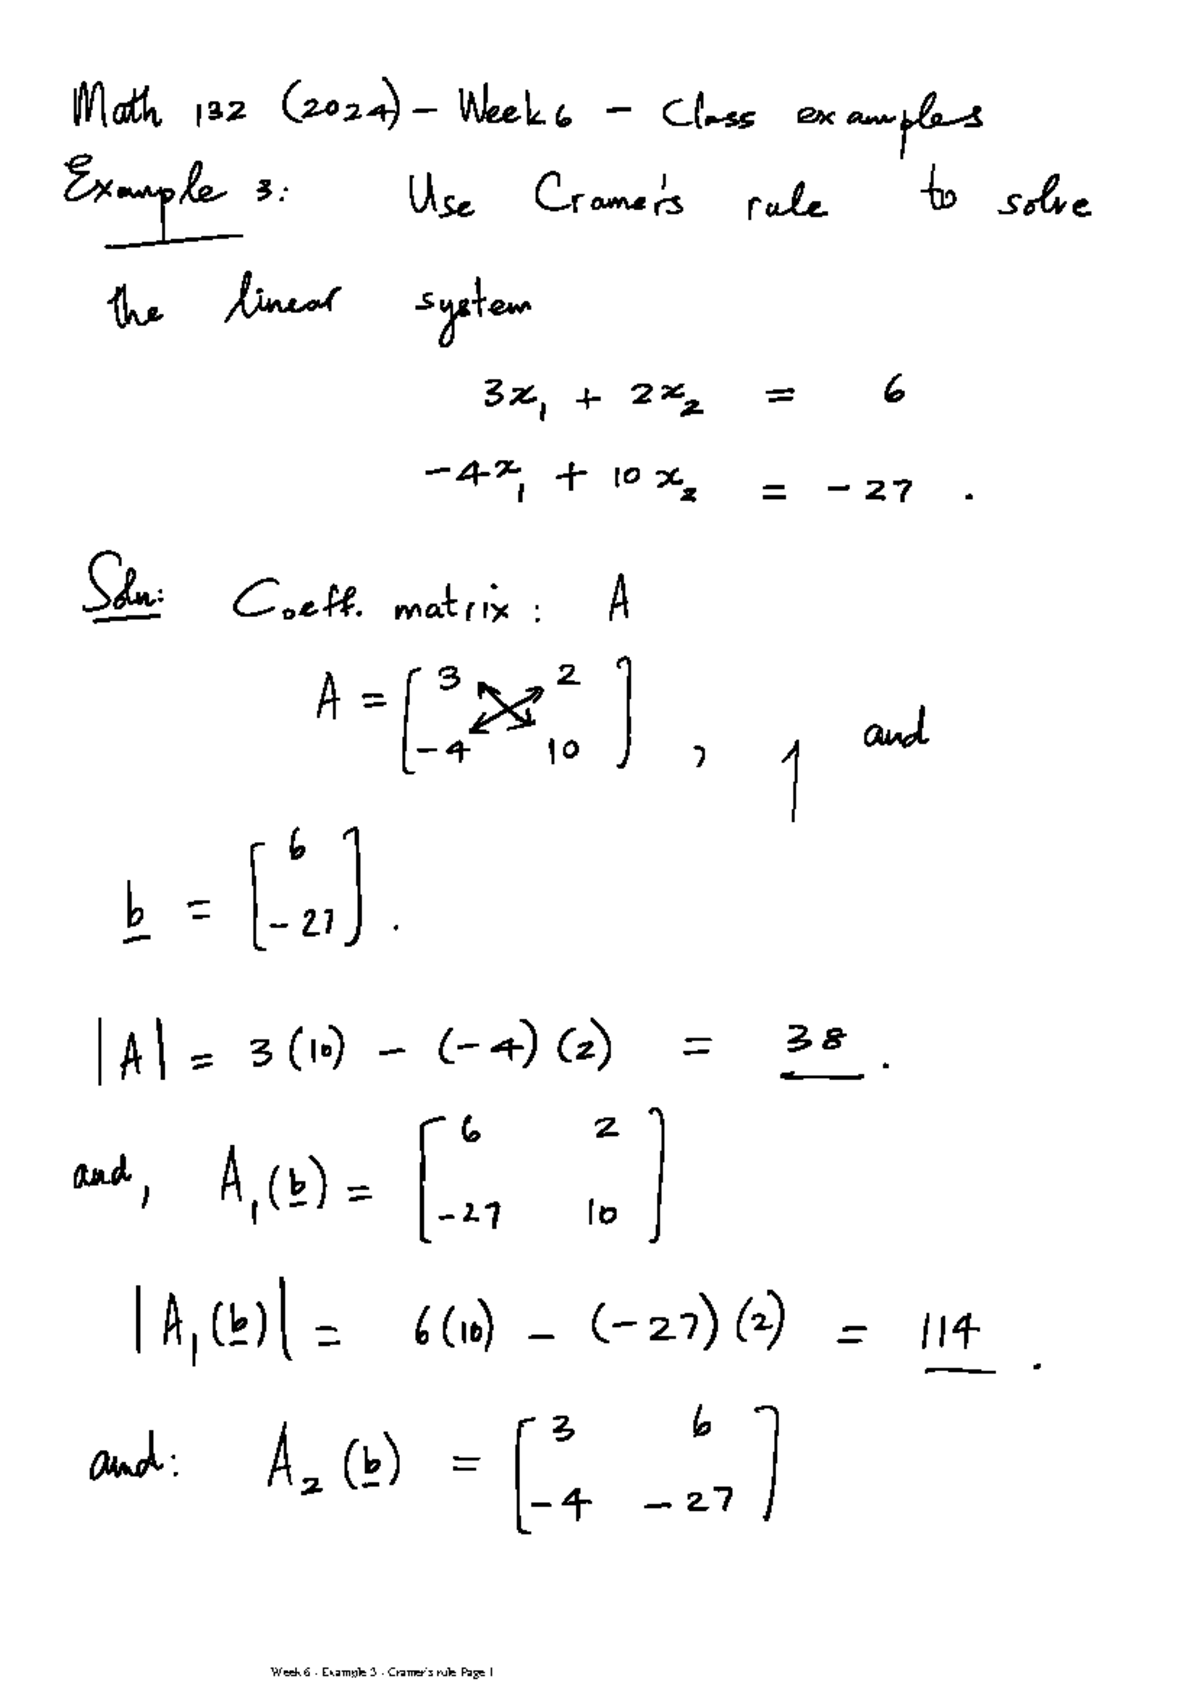 Math 132 (2024) - Week 6 - Class examples
Example 3: Use Cramer's rule to solve
the linear system
3x₁ + 2x₂ = 6
-4x₁ + 10x₂ = -27 .
Soln: Coeff. matrix : A
A = [ 3 2
-4 10 ] , 1 and
b = [ 6
-27 ] .
|A| = 3(10) - (-4)(2) = 38 .
and, A₁(b) = [ 6 2
-27 10 ]
|A₁(b)| = 6(10) - (-27)(2) = 114 .
and: A₂(b) = [ 3 6
-4 -27 ]
Week 6 - Example 3 - Cramer's rule Page 1